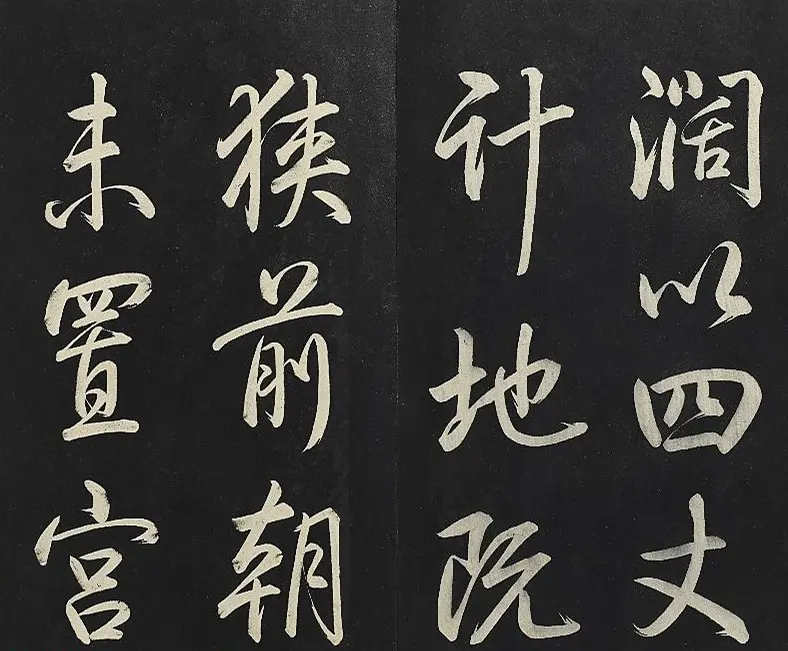 阔以四丈
计地阮
狭前朝
未置宫